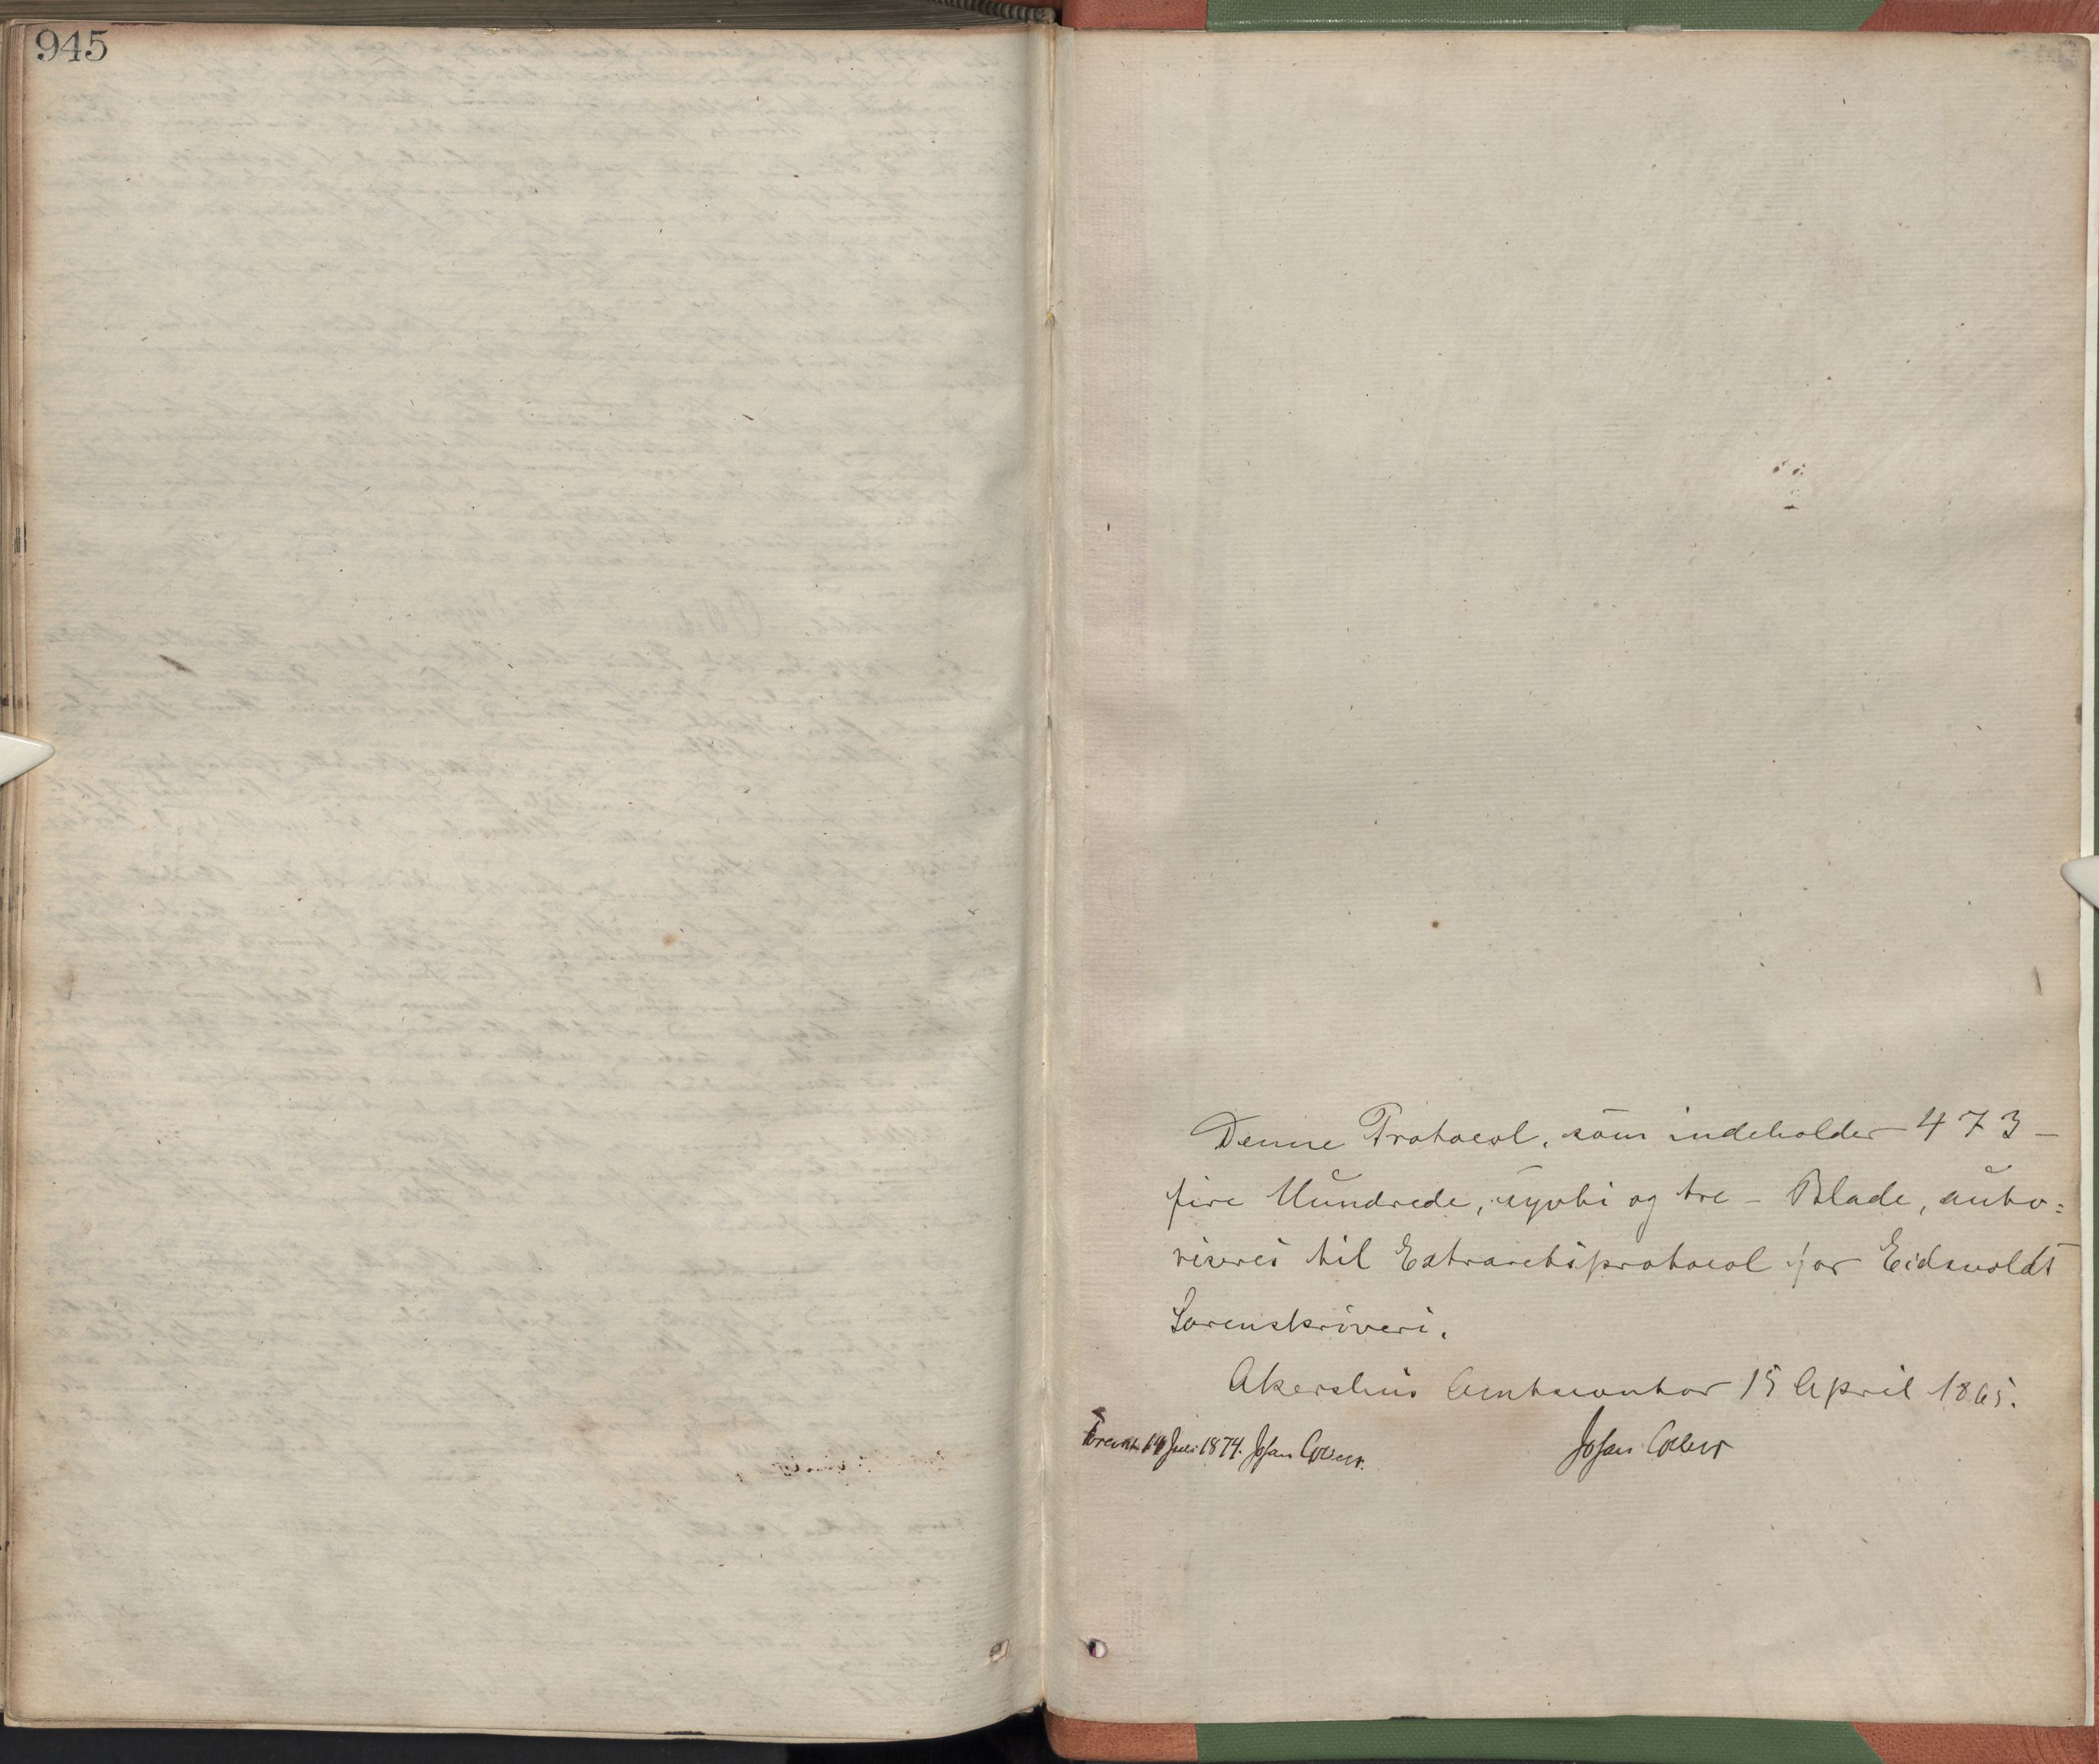 945
Denne Protocol, som indeholder 473 –
fire Hundrede, sytti og tre – Blade, auto=
riseres til Extraretsprotocol for Eidsvolds
Sorenskriveri.
Akershus Amtscontor 15 April 1865.
Johan Collett
Foreviist 14 Juli 1874. Johan Collett.